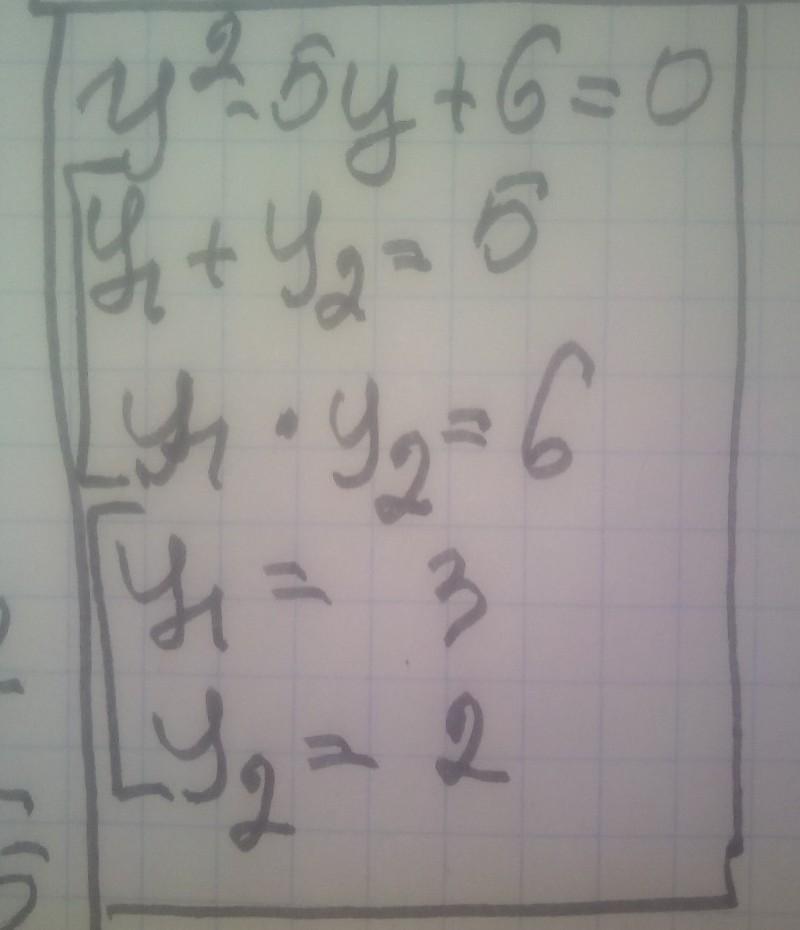 y² - 5y + 6 = 0
y₁ + y₂ = 5
y₁ · y₂ = 6
y₁ = 3
y₂ = 2